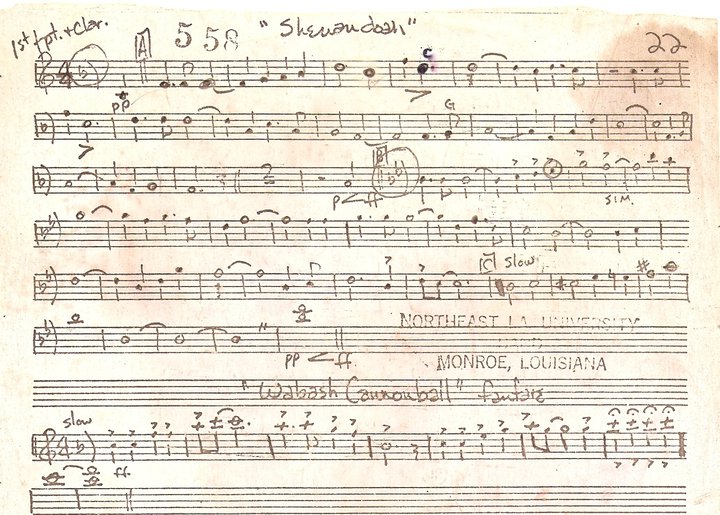 1st tpt. + Clar. A 558 "Shenandoah" 22
C
pp
G
B
p ff SIM.
C slow
NORTHEAST LA. UNIVERSITY
BAND
pp ff MONROE, LOUISIANA
"Wabash Cannonball" fanfare
slow
ff